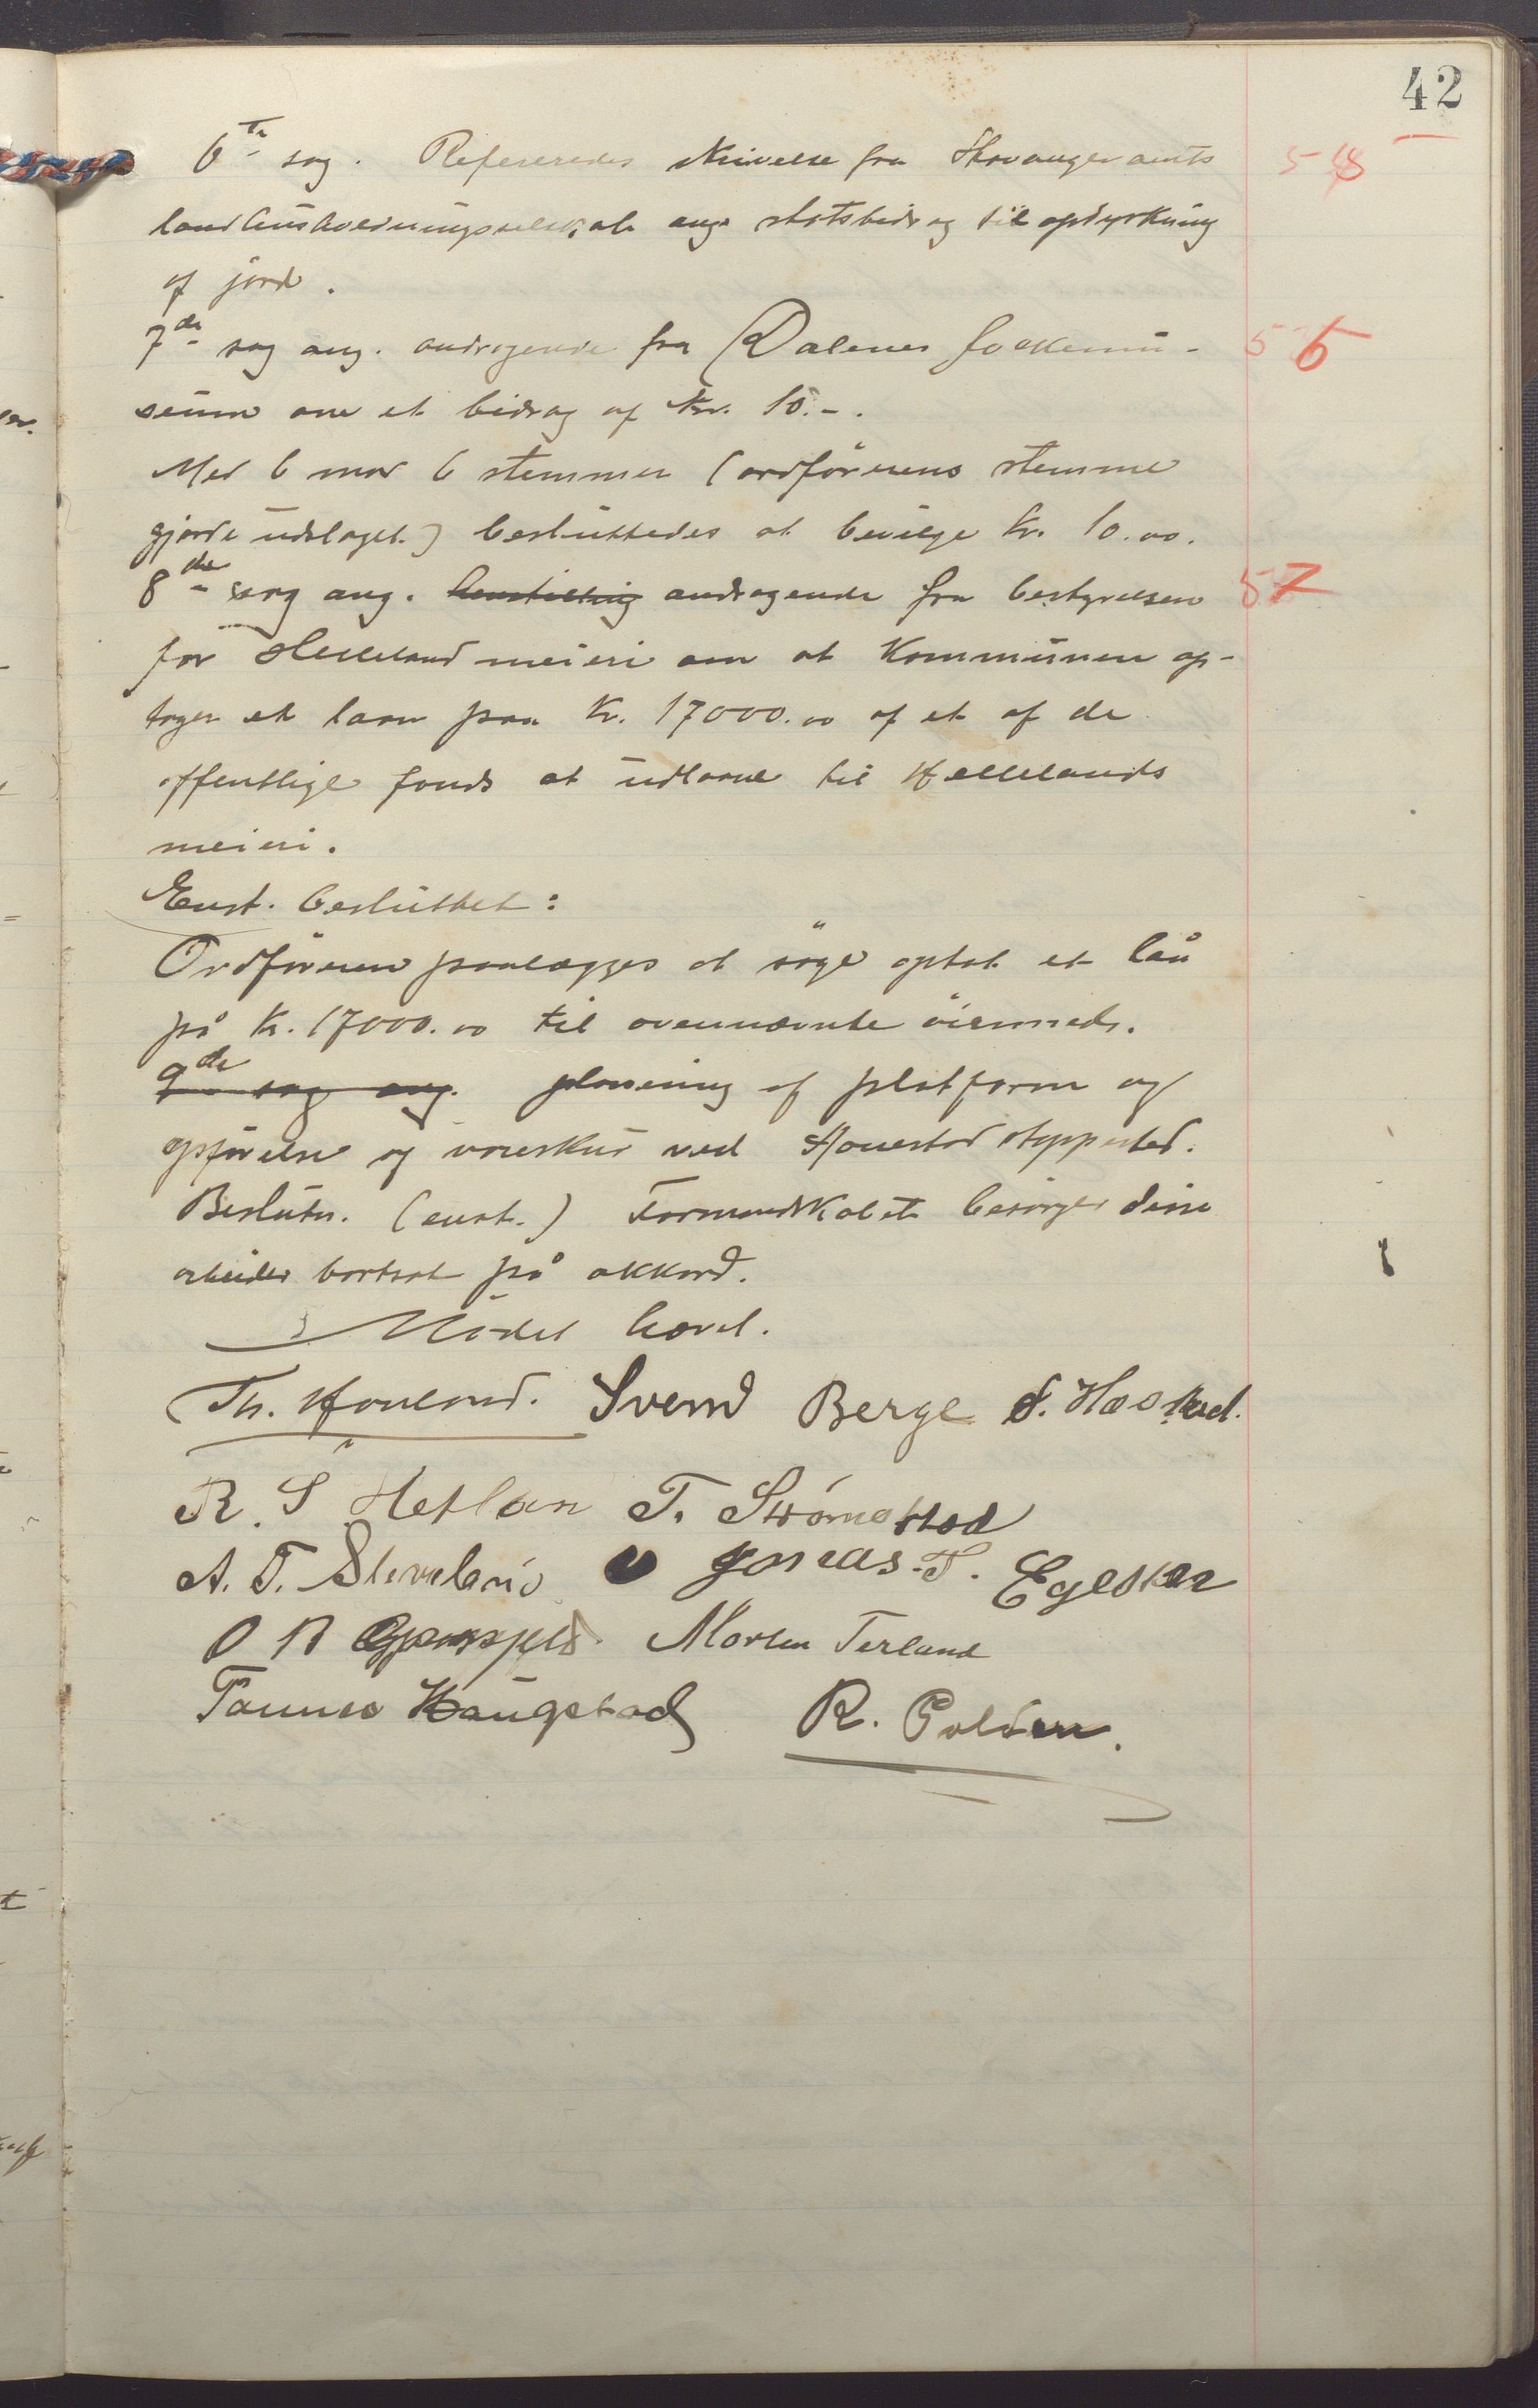 42
6te sag. Refereredes skrivelse fra Stavanger amts
landhusholdningsselskab ang. statsbidrag til opdyrkning
af jord.
7de sag ang. andragende fra Dalenes folkemu-
seum om et bidrag af kr. 10.-.
Med 6 mod 6 stemmer (ordförerens stemme
gjorde udslaget) besluttedes at bevilge kr. 10.00.
8de sag ang. henstilling andragende fra bestyrelsen
for Helleland meieri om at kommunen op-
tager et laan paa kr. 17000.00 af et af de
offentlige fonds at udlaane til Hellelands
meieri.
Enst. besluttet:
Ordföreren paalægges at söge optat et lån
på kr. 17000.00 til ovennævnte öiemed.
9de sag ang. planering af platform og
opförelse og vareskur ved Hovestad stoppested.
Beslutn. (enst.) Formandskabet besörger disse
arbeider bortsat på akkord.
Mödet hævet.
Th. Hovland. Svend Berge S. Hæstad.
R. S. Hetlan T. Strömstad
A. T. Sleveland Jonas T. Egelskær
O R Morten Terland
Tønnes Haugstad R. Polden.
55
56
57